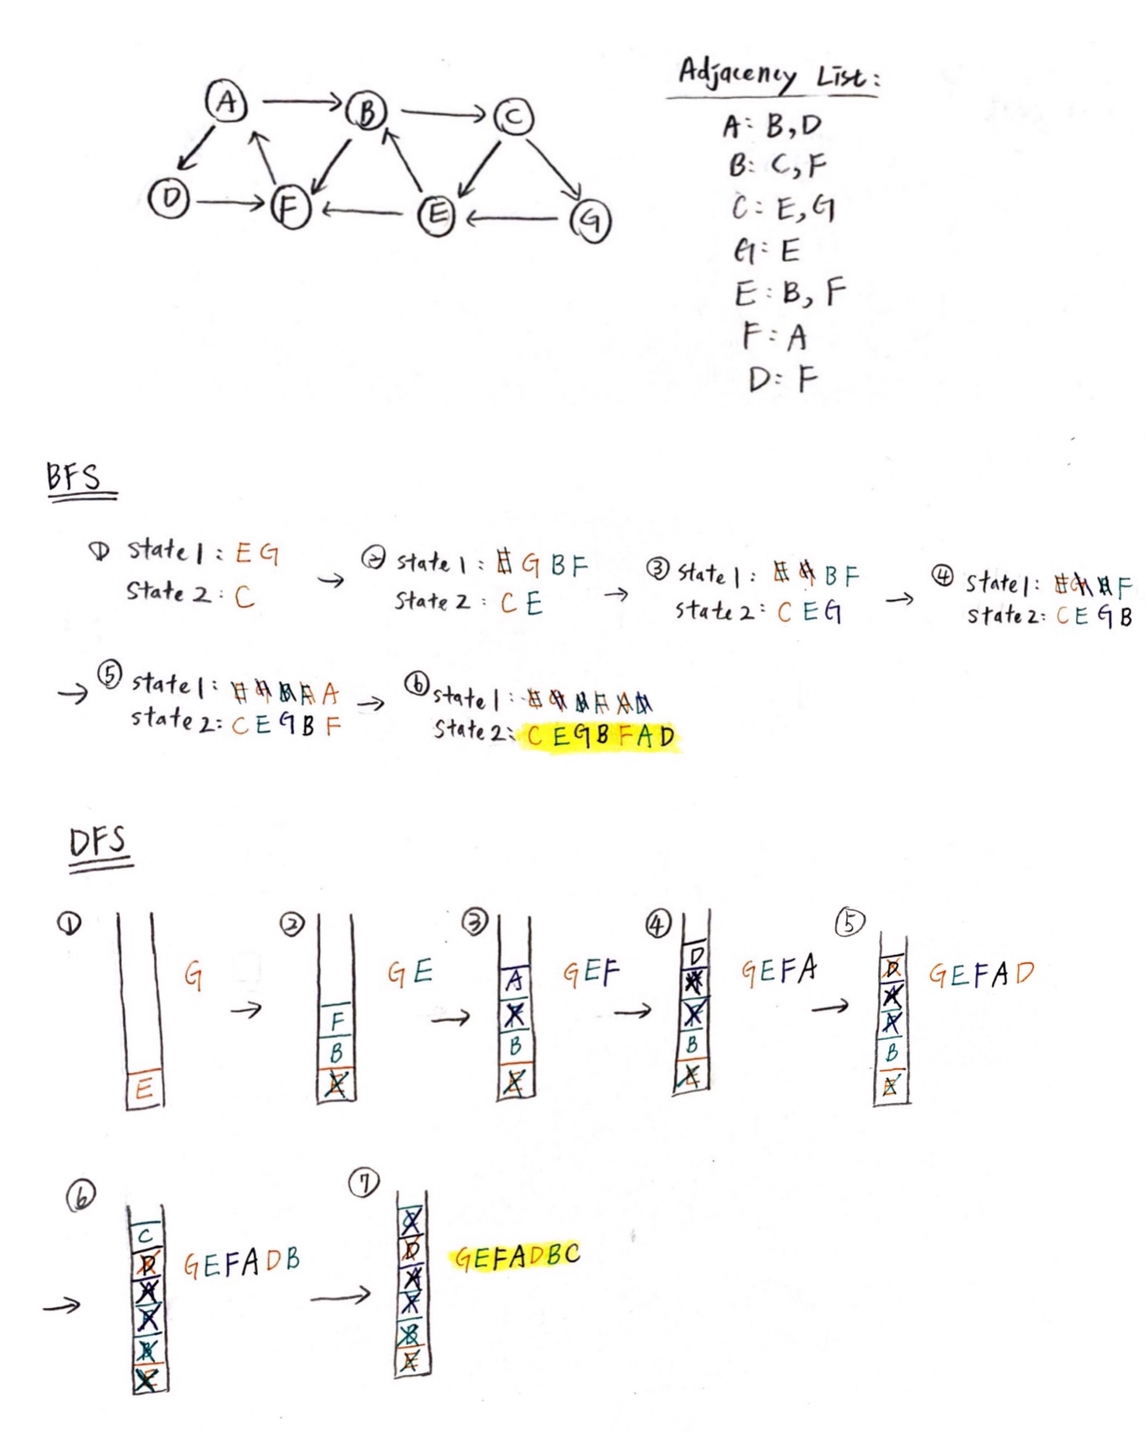 A B C
D F E G
Adjacency List:
A: B, D
B: C, F
C: E, G
G: E
E: B, F
F: A
D: F
BFS
① State 1: E G
State 2: C
→ ② State 1: E G B F
State 2: C E
→ ③ State 1: E G B F
State 2: C E G
→ ④ State 1: E G B F
State 2: C E G B
→ ⑤ State 1: E G B F A
State 2: C E G B F
→ ⑥ State 1: E G B F A D
State 2: C E G B F A D
DFS
①
E
G
→ ②
F
B
E
G E
→ ③
A
F
B
E
G E F
→ ④
D
A
F
B
E
G E F A
→ ⑤
D
A
F
B
E
G E F A D
→ ⑥
C
D
A
F
B
E
G E F A D B
→ ⑦
C
D
A
F
B
E
G E F A D B C